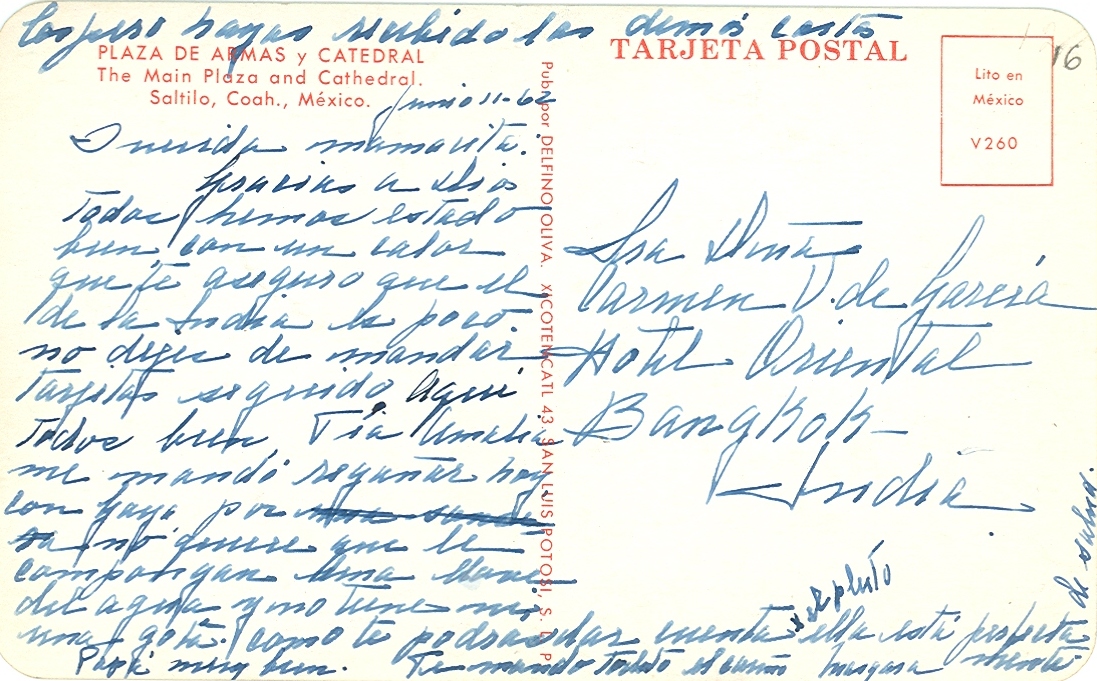 Espero hayas recibido las demás cartas
PLAZA DE ARMAS y CATEDRAL
The Main Plaza and Cathedral.
Saltilo, Coah., México.
Junio 11-62
Querida mamacita.
Gracias a Dios
todos hemos estado
bien, con un calor
que te aseguro que el
de la India es poco.
no dejes de mandar
tarjetas seguido. Aqui
todos bien, Tía Amalia
me mandó regañar hoy
con Yaya por
no quiere que le
compongan una llave
del agua y no tiene ni
una gota. como te podras dar cuenta ella está perfecta
mente
de salud.
Papá muy bien. Te mando todo el cariño
Publ. por DELFINO OLIVA. XICOTENCATL 43. SAN LUIS POTOSI, S. L. P.
TARJETA POSTAL
16
Lito en
México
V260
Sra Doña
Carmen V. de García
Hotel Oriental
Bangkok
India